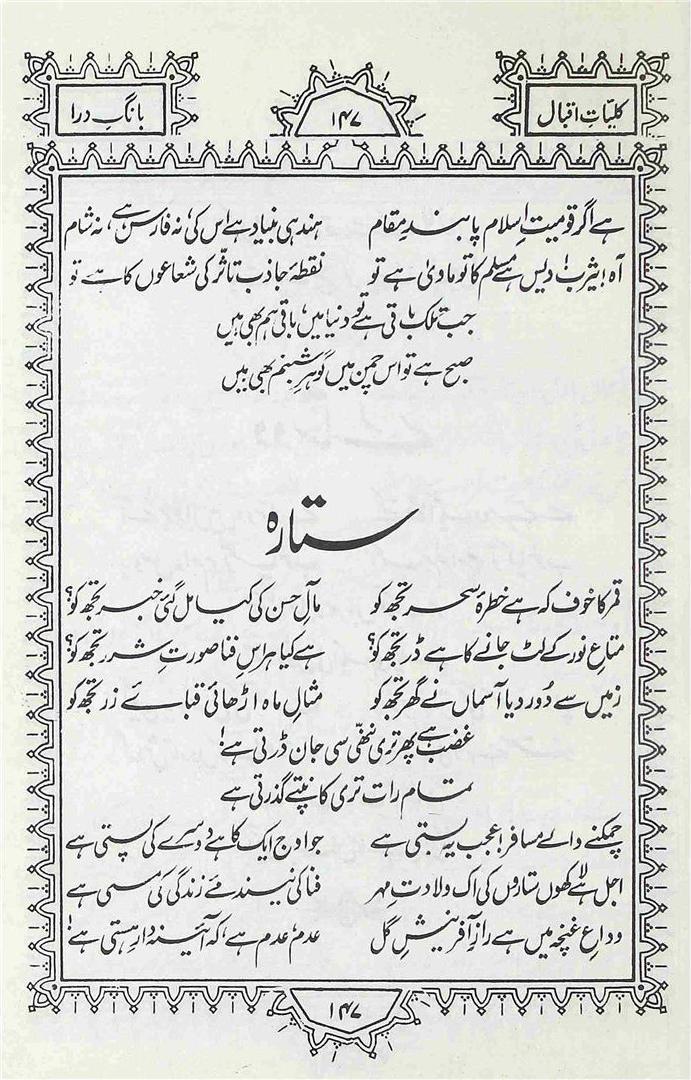 کلیاتِ اقبال
۱۴۷
بانگِ درا
ہے اگر قومیتِ اسلام پابندِ مقام ہند ہی بنیاد ہے اس کی، نہ فارس ہے، نہ شام
آہ! یثرب! دیس ہے مسلم کا تو ماویٰ ہے تو نقطۂ جاذب تاثّر کی شعاعوں کا ہے تو
جب تلک باقی ہے تو دنیا میں، باقی ہم بھی ہیں
صبح ہے تو اس چمن میں گوہرِ شبنم بھی ہیں
ستارہ
قمر کا خوف کہ ہے خطرۂ سحر تجھ کو مآلِ حسن کی کیا مل گئی خبر تجھ کو؟
متاعِ نور کے لٹ جانے کا ہے ڈر تجھ کو؟ ہے کیا ہراسِ فنا صورتِ شرر تجھ کو؟
زمیں سے دُور دیا آسماں نے گھر تجھ کو مثالِ ماہ اڑھائی قبائے زر تجھ کو
غضب ہے پھر تری ننھّی سی جان ڈرتی ہے!
تمام رات تری کانپتے گذرتی ہے
چمکنے والے مسافر! عجب یہ بستی ہے جو اوج ایک کا ہے دوسرے کی پستی ہے
اجل ہے لاکھوں ستاروں کی اک ولادتِ مہر فنا کی نیند مئے زندگی کی مستی ہے
وداعِ غنچہ میں ہے رازِ آفرینشِ گل عدم، عدم ہے، کہ آئینہ دارِ ہستی ہے!
۱۴۷